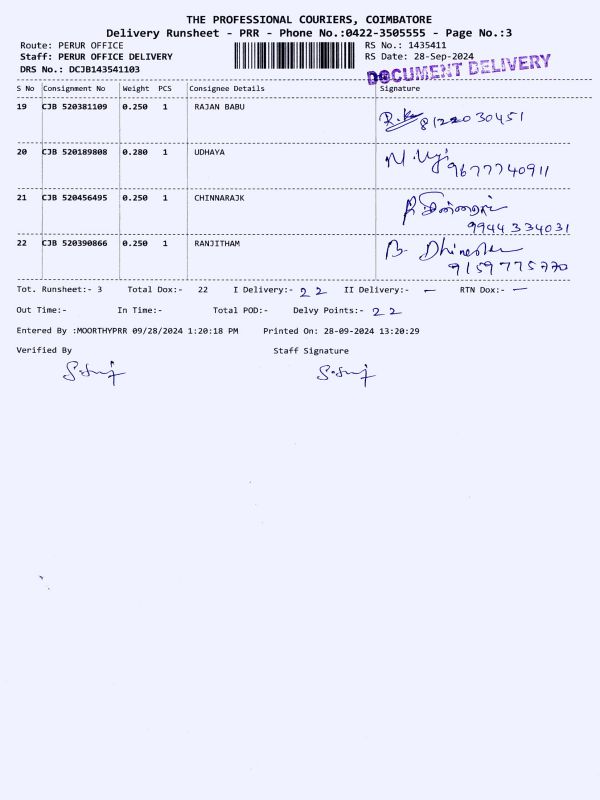 THE PROFESSIONAL COURIERS, COIMBATORE
Delivery Runsheet - PRR - Phone No.:0422-3505555 - Page No.:3
Route: PERUR OFFICE RS No.: 1435411
Staff: PERUR OFFICE DELIVERY RS Date: 28-Sep-2024
DRS No.: DCJB143541103
DOCUMENT DELIVERY
S No Consignment No Weight PCS Consignee Details Signature
19 CJB 520381109 0.250 1 RAJAN BABU
8122030451
20 CJB 520189808 0.280 1 UDHAYA
9677740911
21 CJB 520456495 0.250 1 CHINNARAJK
9944334031
22 CJB 520390866 0.250 1 RANJITHAM B. Dhinesh
9159775770
Tot. Runsheet:- 3 Total Dox:- 22 I Delivery:- 22 II Delivery:- — RTN Dox:- —
Out Time:- In Time:- Total POD:- Delvy Points:- 22
Entered By :MOORTHYPRR 09/28/2024 1:20:18 PM Printed On: 28-09-2024 13:20:29
Verified By Staff Signature